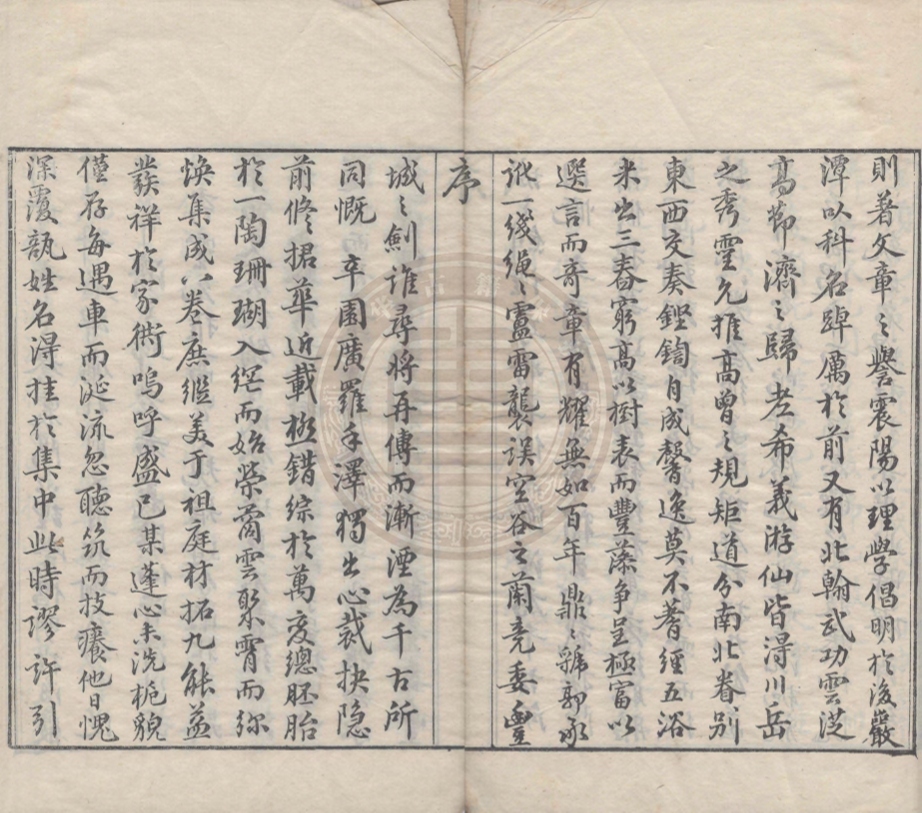 則著文章之譽震陽以理學倡明於後嚴
潭以科名踔厲於前又有北翰武功雲從
高節濟之歸老希義游仙皆得川岳
之秀靈允推高曾之規矩道分南北眷別
東西交奏鏗鍧自成馨逸莫不著經五浴
米出三舂窮高以樹表而豐藻爭呈極富以
選言而奇章有耀無如百年鼎鼎號郭承
訛一綫繩繩靁雷襲誤空谷之蘭竞委豐
序
城之劍誰尋將再傳而漸湮為千古所
同慨 卒園廣羅手澤獨出心裁抉隐
前修捃華近載極錯綜於萬变總胚胎
於一陶珊瑚入網而始榮蔚雲聚霄而弥
煥集成八卷庶繼美于祖庭材拓九能益
發祥於家衖嗚呼盛已某蓬心未洗梔貌
僅存每遇車而涎流忽聽筑而技癢他日愧
深覆瓿姓名得挂於集中此時謬許引